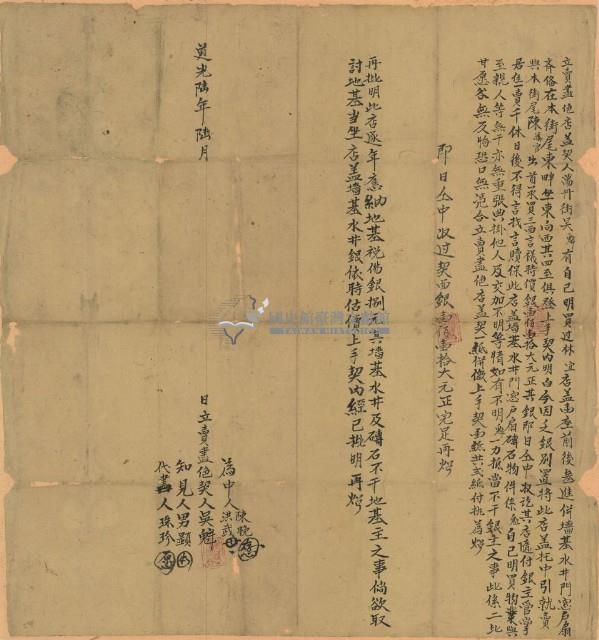 立賣盡絕店蓋契人滿丹街吳 有自己明買過林 店蓋 座前後 進併墻基水井門窓戶扇
齊俻在本街尾東畔坐東向西其四至俱登上手契內明白今因乏銀別置將此店蓋托中引就賣
與本街尾陳 出首承買三面言議時價銀壹佰壹拾大元正其銀即日仝中收訖其店隨付銀主管掌
居住一賣千休日後不得言找言贖保此店蓋墻基水井門窓戶扇磚石物件係 自己明買物業與
至親人等無干亦無重張典掛他人及交加不明等情如有不明 一力抵當不干銀主之事此係二比
甘愿各無反悔恐口無憑合立賣盡絕店蓋契一紙併繳上手契 紙共 紙付執為炤
即日仝中收过契面銀壹佰壹拾大元正完足再炤
再批明此店逐年應納地基稅佛銀捌 其墻基水井及磚石不干地基主之事倘欲取
討地基当坐店蓋墻基水井銀依時估價上手契內經已批明再炤
為中人 陳
洪武
日立賣盡絕契人吳
知見人男顯
代書人珠珍
道光陸年陸月
國立臺灣歷史博物館
TAIWAN HISTORY